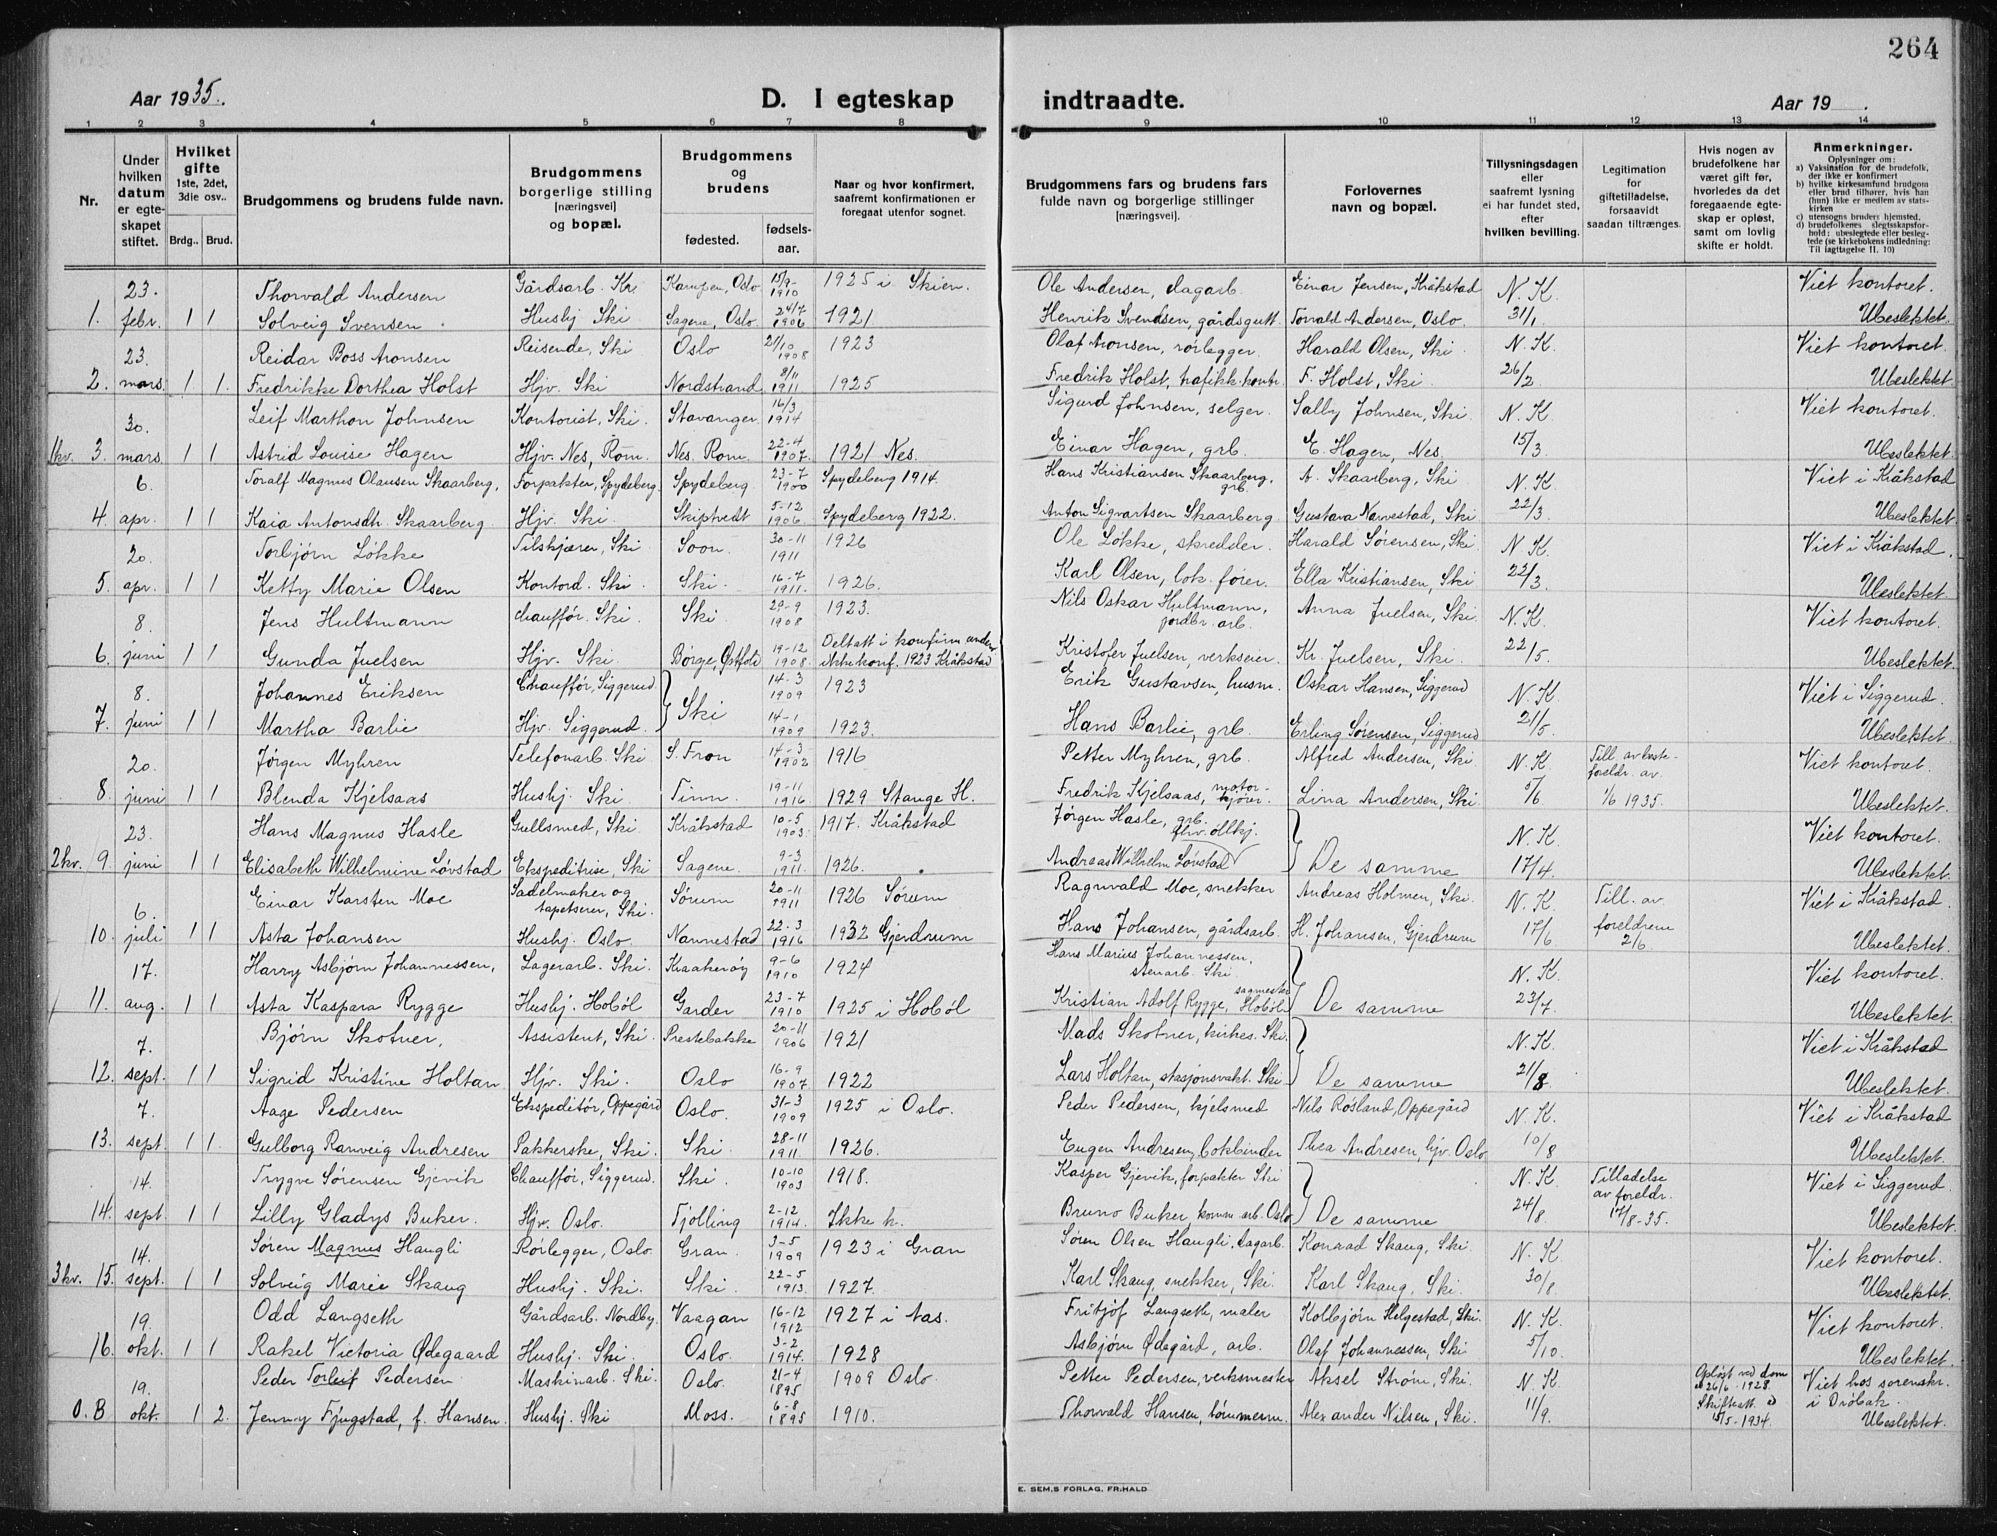 264
Aar 1935.
D. I egteskap indtraadte.
Aar 19 .
1 2 3 4 5 6 7 8 9 10 11 12 13 14
Nr.
Under hvilken datum er egteskapet stiftet.
Hvilket gifte 1ste, 2det, 3die osv..
Brdg.. Brud.
Brudgommens og brudens fulde navn.
Brudgommens borgerlige stilling [næringsvei] og bopæl.
Brudgommens og brudens
fødested. fødselsaar.
Naar og hvor konfirmert, saafremt konfirmationen er foregaat utenfor sognet.
Brudgommens fars og brudens fars fulde navn og borgerlige stillinger [næringsvei].
Forlovernes navn og bopæl.
Tillysningsdagen eller saafremt lysning ei har fundet sted, efter hvilken bevilling.
Legitimation for giftetilladelse, forsaavidt saadan tiltrænges.
Hvis nogen av brudefolkene har været gift før, hvorledes da det foregaaende egteskap er opløst, samt om lovlig skifte er holdt.
Anmerkninger.
Oplysninger om:
a) Vaksination for de brudefolk, der ikke er konfirmert
b) hvilke kirkesamfund brudgom eller brud tilhører, hvis han (hun) ikke er medlem av statskirken
c) utensogns bruders hjemsted.
d) brudefolkenes slegtsskapsforhold: ubeslegtede eller beslegtede (se kirkebokens indledning: Til iagttagelse II. 10)
23. Thorvald Andersen Gårdsarb. Kr. Kampen, Oslo 15/9-1910 1925 i Skien. Ole Andersen, dagarb. Einar Jensen, Kråkstad N. K. Viet kontoret.
1. febr. 1 1 Solveig Svensen Hushj. Ski Sagene, Oslo 24/7 1906 1921 Henrik Svendsen, gårdsgutt. Torvald Andersen, Oslo. 31/1 Ubeslektet.
23. Reidar Boss Aronsen Reisende, Ski Oslo 21/10 1908 1923 Olaf Aronsen, rørlegger. Harald Olsen, Ski N. K. Viet kontoret.
2. mars. 1 1. Fredrikke Dorthea Holst Hjv. Ski Nordstrand 8/11 1911 1925 Fredrik Holst, trafikk.kontr. F. Holst, Ski 26/2 Ubeslektet
30. Leif Marthon Johnsen Kontorist, Ski. Stavanger 16/3 1914 Sigurd Johnsen, selger. Sally Johnsen, Ski N. K Viet kontoret.
1kv. 3. mars 1 1 Astrid Louise Hagen Hjv. Nes, Rom. Nes. Rom 22-4 1907 1921 Nes. Einar Hagen, grb. E. Hagen, Nes. 15/3 Ubeslektet
6. Toralf Magnus Olausen Skaarberg, Forpakter, Spydeberg Spydeberg 23-7 1900 Spydeberg 1914. Hans Kristiansen Skaarberg, grb. A. Skaarberg, Ski N. K. Viet i Kråkstad
4 apr. 1 1 Kaia Antonsdt. Skaarberg. Hjv. Ski Skiptvedt 5-12 1906 Spydeberg 1922. Anton Sigvartsen Skaarberg Gustava Narvestad, Ski 22/3 Ubeslektet.
20. Torbjørn Løkke Tilskjærer, Ski Soon 30-11 1911 1926 Ole Løkke, skredder. Harald Sørensen, Ski. N. K Viet i Kråkstad.
5. apr. 1 1 Ketty Marie Olsen Kontord. Ski. Ski. 16-7 1911. 1926. Karl Olsen, lok. fører. Ella Kristiansen, Ski 22/3 Ubeslektet.
8. Jens Hultmann chauffør. Ski. Ski 29-9 1908 1923. Nils Oskar Hultmann, jordbr. arb. Anna Juelsen, Ski. N. K. Viet kontoret.
6. juni 1 1 Gunda Juelsen Hjv. Ski. Børge, Østfold 19-12 1908. Deltatt i konfirm. under. ikke konf. 1923 Kråkstad Kristofer Juelsen, verkseier. Kr. Juelsen, Ski. 22/5. Ubeslektet.
8. Johannes Eriksen Chauffør, Siggerud } Ski 14-3 1909 1923 Erik Gustavsen, husm. Oskar Hansen, Siggerud N. K. Viet i Siggerud.
7. juni 1 1 Martha Barlie Hjv. Siggerud. 14-1 1909 1923. Hans Barlie, grb. Erling Sørensen, Siggerud 21/5 Ubeslektet.
20. Jørgen Myhren Telefonarb. Ski S. Fron 14-3 1902 1916 Petter Myhren, grb. Alfred Andersen, Ski. N. K Till. av foreldr. av 1/6 1935. Viet kontoret.
8. juni 1 1 Blenda Kjelsaas Hushj. Ski. Tinn. 19-11 1916 1929 Stange H. Fredrik Kjelsaas, motorkjører. Lina Andersen, Ski. 5/6 Ubeslektet.
23. Hans Magnus Hasle Gullsmed, Ski Kråkstad 10-5 1903. 1917. Kråkstad Jørgen Hasle, grb. } De samme N. K Viet kontoret.
2kv. 9 juni 1 1 Elisabeth Wilhelmine Løvstad Ekspeditrise, Ski Sagene. 9-3 1911 1926. Andreas Wilhelm Løvstad 17/4. Ubeslektet.
6. Einar Karsten Moe Sadelmaker og tapetserer, Ski. Sørum 20-11 1911 1926 Sørum Ragnvald Moe, snekker Andreas Holmen, Ski. N. K. Till. av foreldrene 2/6. Viet i Kråkstad.
10. juli 1 1 Asta Johansen Hushj. Oslo. Nannestad 22-3 1916 1932 Gjerdrum Hans Johansen, gårdsarb. H. Johansen, Gjerdrum 17/6 Ubeslektet.
17. Harry Asbjørn Johannessen, Lagerarb. Ski. Kraakerøy 9-6 1910 1924 Hans Marius Johannessen, stenarb. Ski. } De samme N. K. Viet kontoret.
11. aug. 1 1 Asta Kaspara Rygge Hushj. Hobøl Garder 23-7 1910 1925 i Hobøl Kristian Adolf Rygge, sagmester Hobøl 23/7. Ubeslektet.
7. Bjørn Skotner, Assistent, Ski. Prestebakke 20-11 1906 1921 Mads Skotner, kirkes. Ski. } De samme N. K. Viet i Kråkstad
12. sept. 1 1 Sigrid Kristine Holtan Hjv. Ski. Oslo 16-9 1907 1922 Lars Holtan, stasjonsvakt. Ski 21/8 Ubeslektet.
7. Aage Pedersen Ekspeditør, Oppegård Oslo. 31-3 1909 1925 i Oslo. Peder Pedersen, kjelsmed Nils Røsland, Oppegård N. K. Viet i Kråkstad
13. sept. 1 1. Gulborg Ranveig Andresen Pakkerske, Ski. Ski. 28-11 1911. 1926. Eugen Andresen, bokbinder Thea Andresen, hjv. Oslo 10/8 Ubeslektet.
14. Trygve Sørensen Gjevik Chauffør, Siggerud. Ski. 10-10 1903 1918. Kasper Gjevik, forpakter Ski } De samme N. K Tilladelse av foreldr. 17/8-35. Viet i Siggerud.
14. sept. 1 1 Lilly Gladys Buker. Hjv. Oslo. Tjølling 2-12 1914. Ikke k. Bruno Buker, komm. arb. Oslo 24/8 Ubeslektet.
14. Søren Magnus Haugli Rørlegger, Oslo. Gran. 3-5 1909 1923 i Gran Søren Olsen Haugli, dagarb. Konrad Skaug, Ski. N. K Viet kontoret.
3kv. 15. sept. 1 1 Solveig Marie Skaug Hushj. Ski. Ski 22-5 1913. 1927. Karl Skaug, snekker, Ski. Karl Skaug, Ski. 30/8. Ubeslektet.
19. Odd Langseth Gårdsarb. Nordby. Vaagan 16-12 1912 1927 i Aas. Fritjof Langseth, maler Kolbjørn Helgestad, Ski. N. K. Viet kontoret.
16. okt. 1 1 Rakel Victoria Ødegaard Hushj. Ski. Oslo. 3-2 1914. 1928 Asbjørn Ødegård, arb. Olaf Johannessen, Ski 5/10. Ubeslektet.
19. Peder Torleif Pedersen Maskinarb. Ski. Oslo. 21-4 1895 1909 Oslo. Petter Pedersen, verksmester Aksel Strøm, Ski. N. K. Opløst ved dom 26/6 1928. Skifteatt. 15/5-1934. Viet hos sorenskr. i Drøbak.
0.8 okt. 1 2. Jenny Fjugstad, f. Hansen. Hushj. Ski Moss. 6-8 1895 1910. Thorvald Hansen, tømmerm. Alexander Nilsen, Ski. 11/9. Ubeslektet.
E. SEM,S FORLAG, FR:HALD